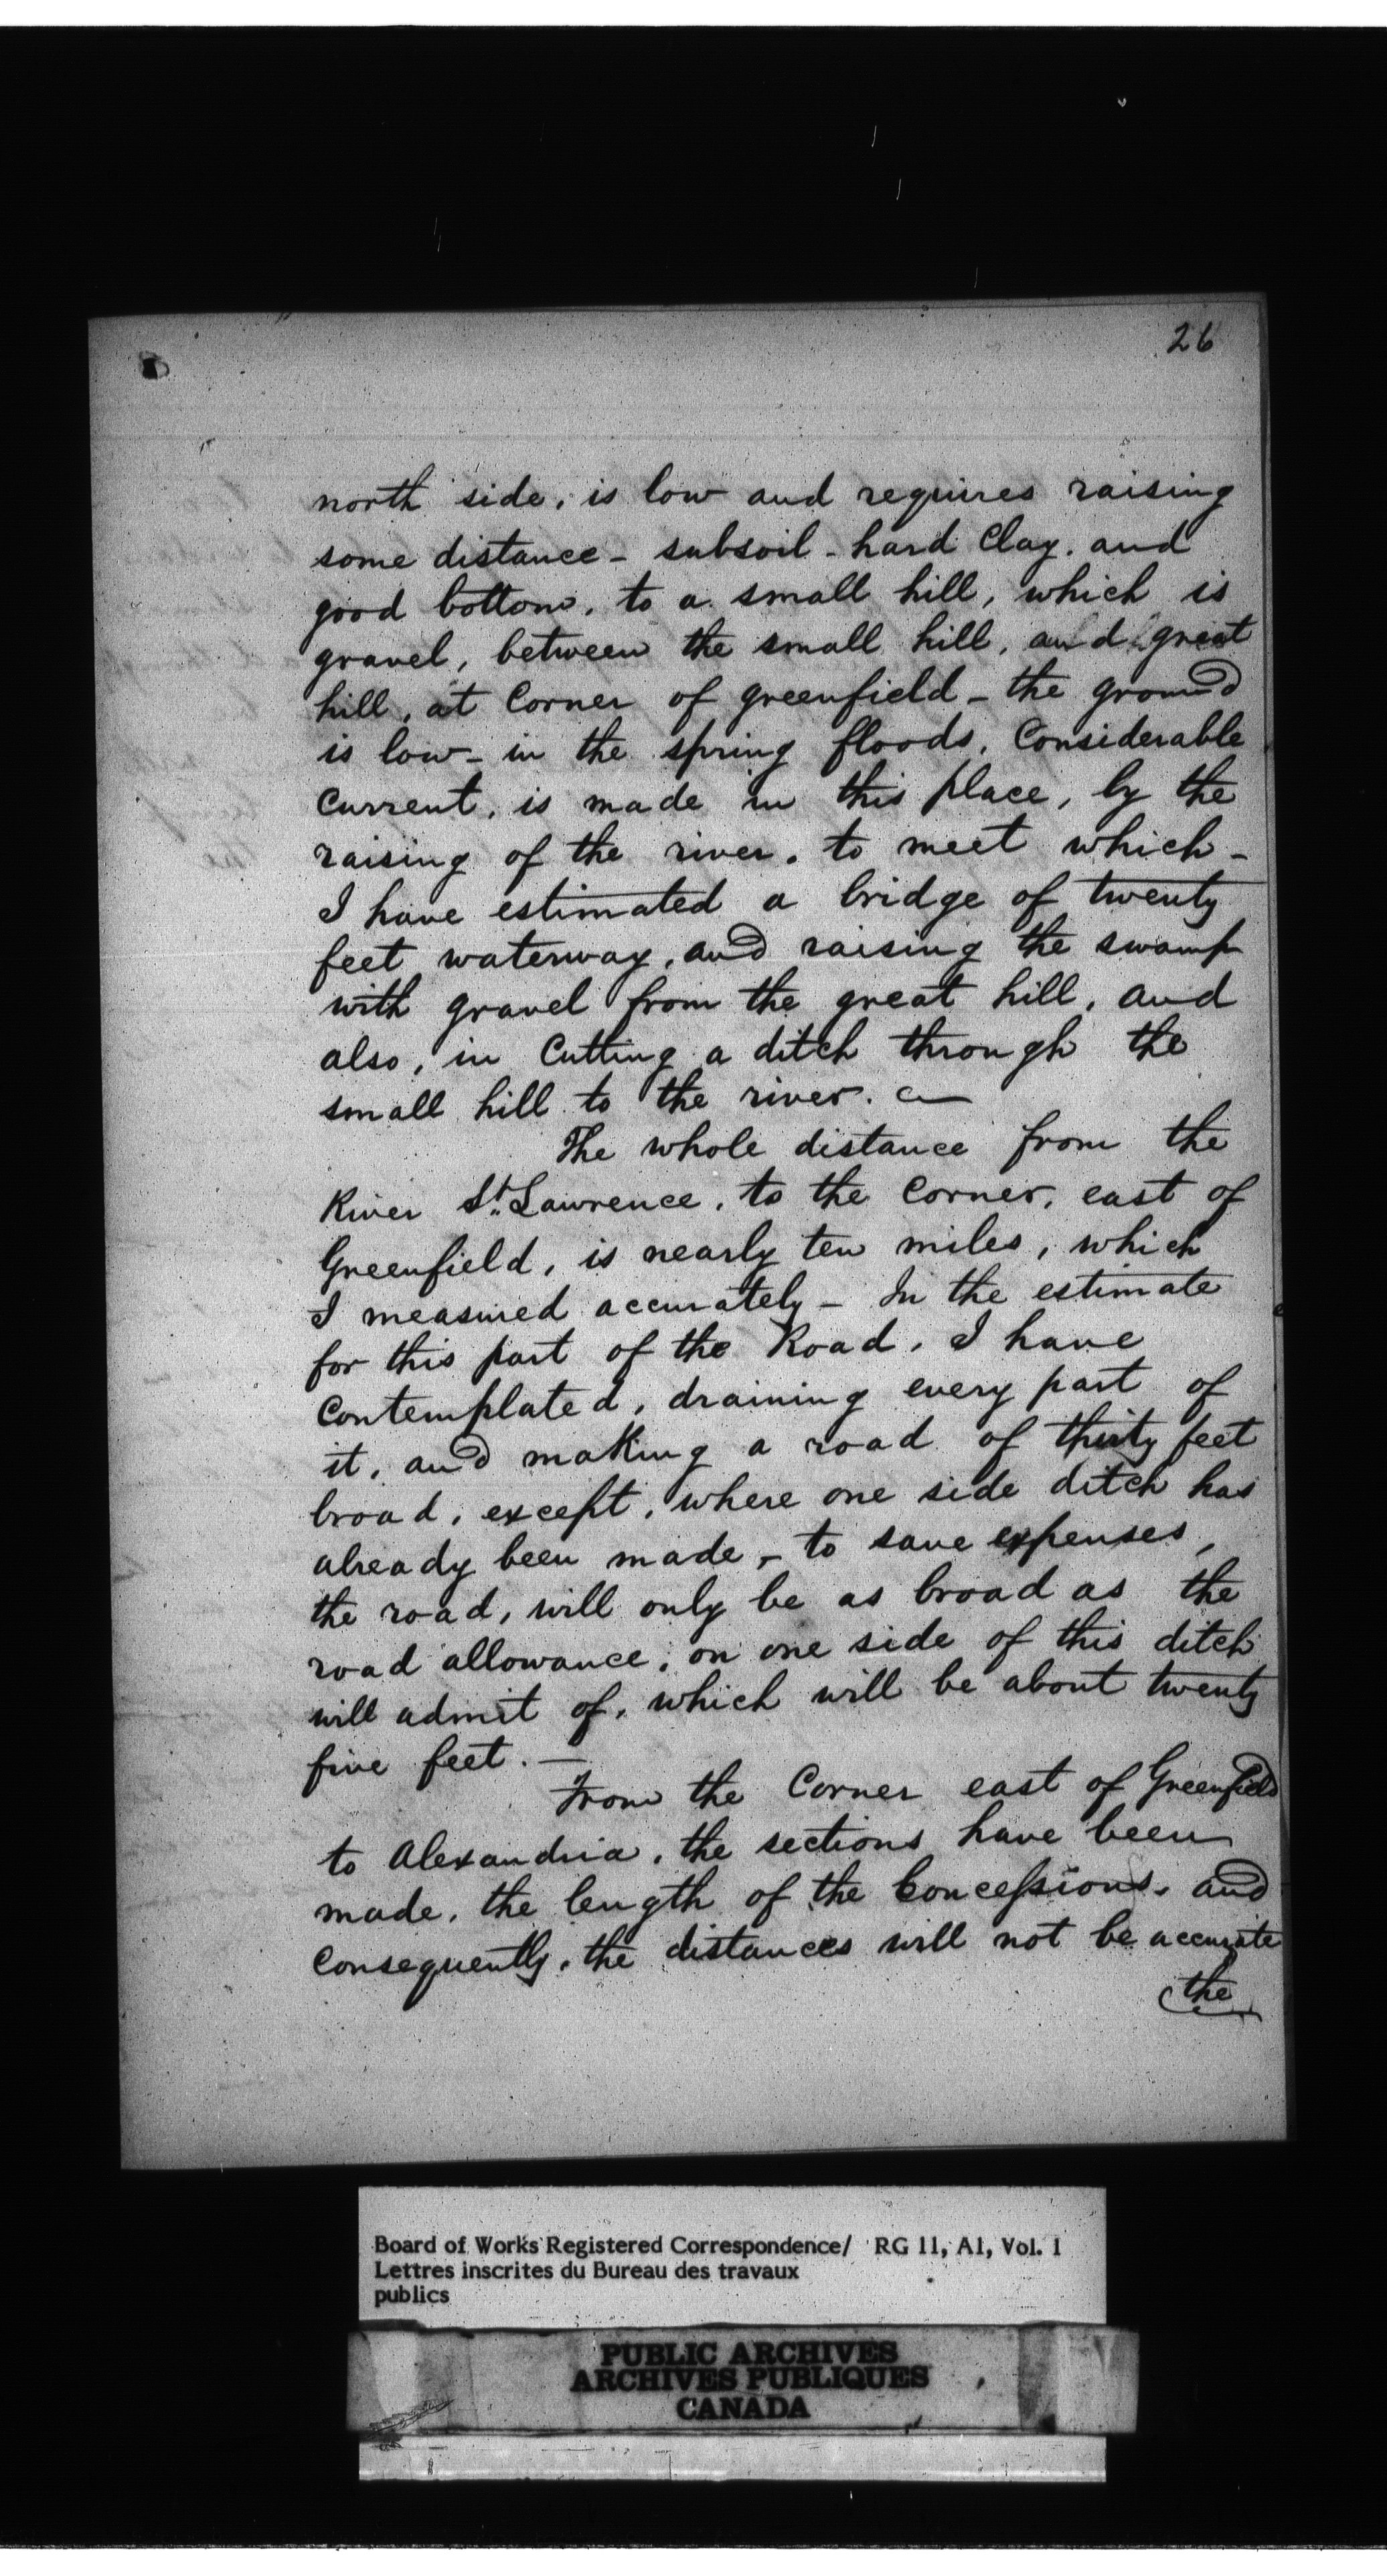 26
north side, is low and requires raising
some distance - subsoil - hard Clay. and
good bottom, to a small hill, which is
gravel, between the small hill, and great
hill, at Corner of greenfield - the ground
is low - in the spring floods, Considerable
Current, is made in this place, by the
raising of the river. to meet which -
I have estimated a bridge of twenty
feet waterway, and raising the swamp
with gravel from the great hill, and
also, in Cutting a ditch through the
small hill to the river. —
The whole distance from the
River St. Lawrence, to the Corner, east of
Greenfield, is nearly ten miles, which
I measured accurately - In the estimate
for this part of the Road, I have
Contemplated, draining every part of
it, and making a road of thirty feet
broad, except, where one side ditch has
already been made, - to save expenses,
the road, will only be as broad as the
road allowance, on one side of this ditch
will admit of, which will be about twenty
five feet. —
From the Corner east of Greenfield
to Alexandria, the sections have been
made, the length of the Concessions, and
Consequently, the distances will not be accurate
the
Board of Works Registered Correspondence/ RG 11, A1, Vol. 1
Lettres inscrites du Bureau des travaux
publics
PUBLIC ARCHIVES
ARCHIVES PUBLIQUES
CANADA